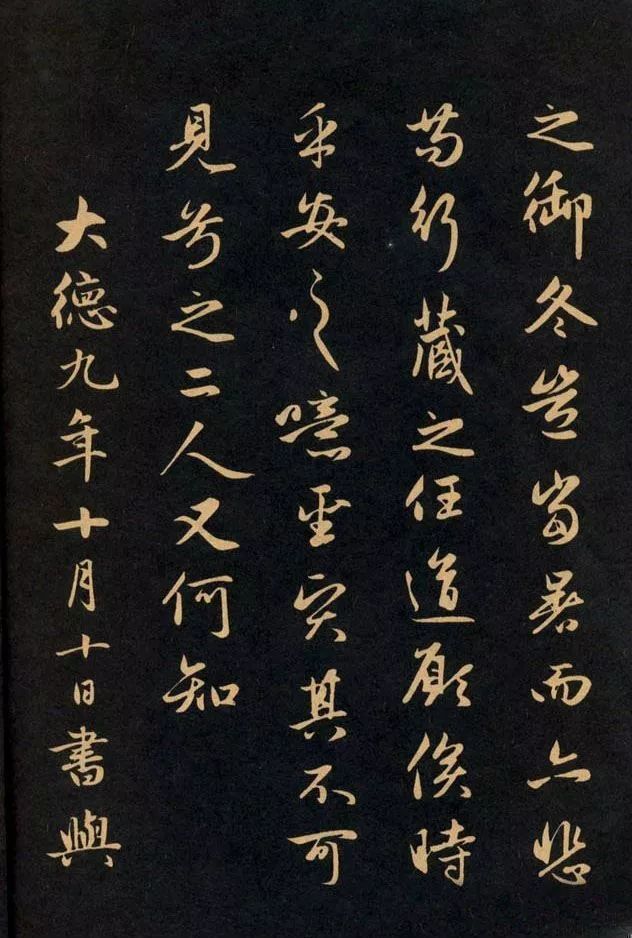 之御冬豈當暑而亦悲
苟行藏之任道願俟時
乎安之噫聖賢其不可
見兮之二人又何知
大德九年十月十日書與